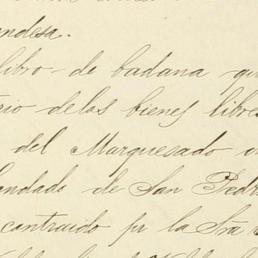 ndesa.
libro de badana qu
rio delas bienes libres
del Marquesado
andado de San Pedr
contraido pr la Sra